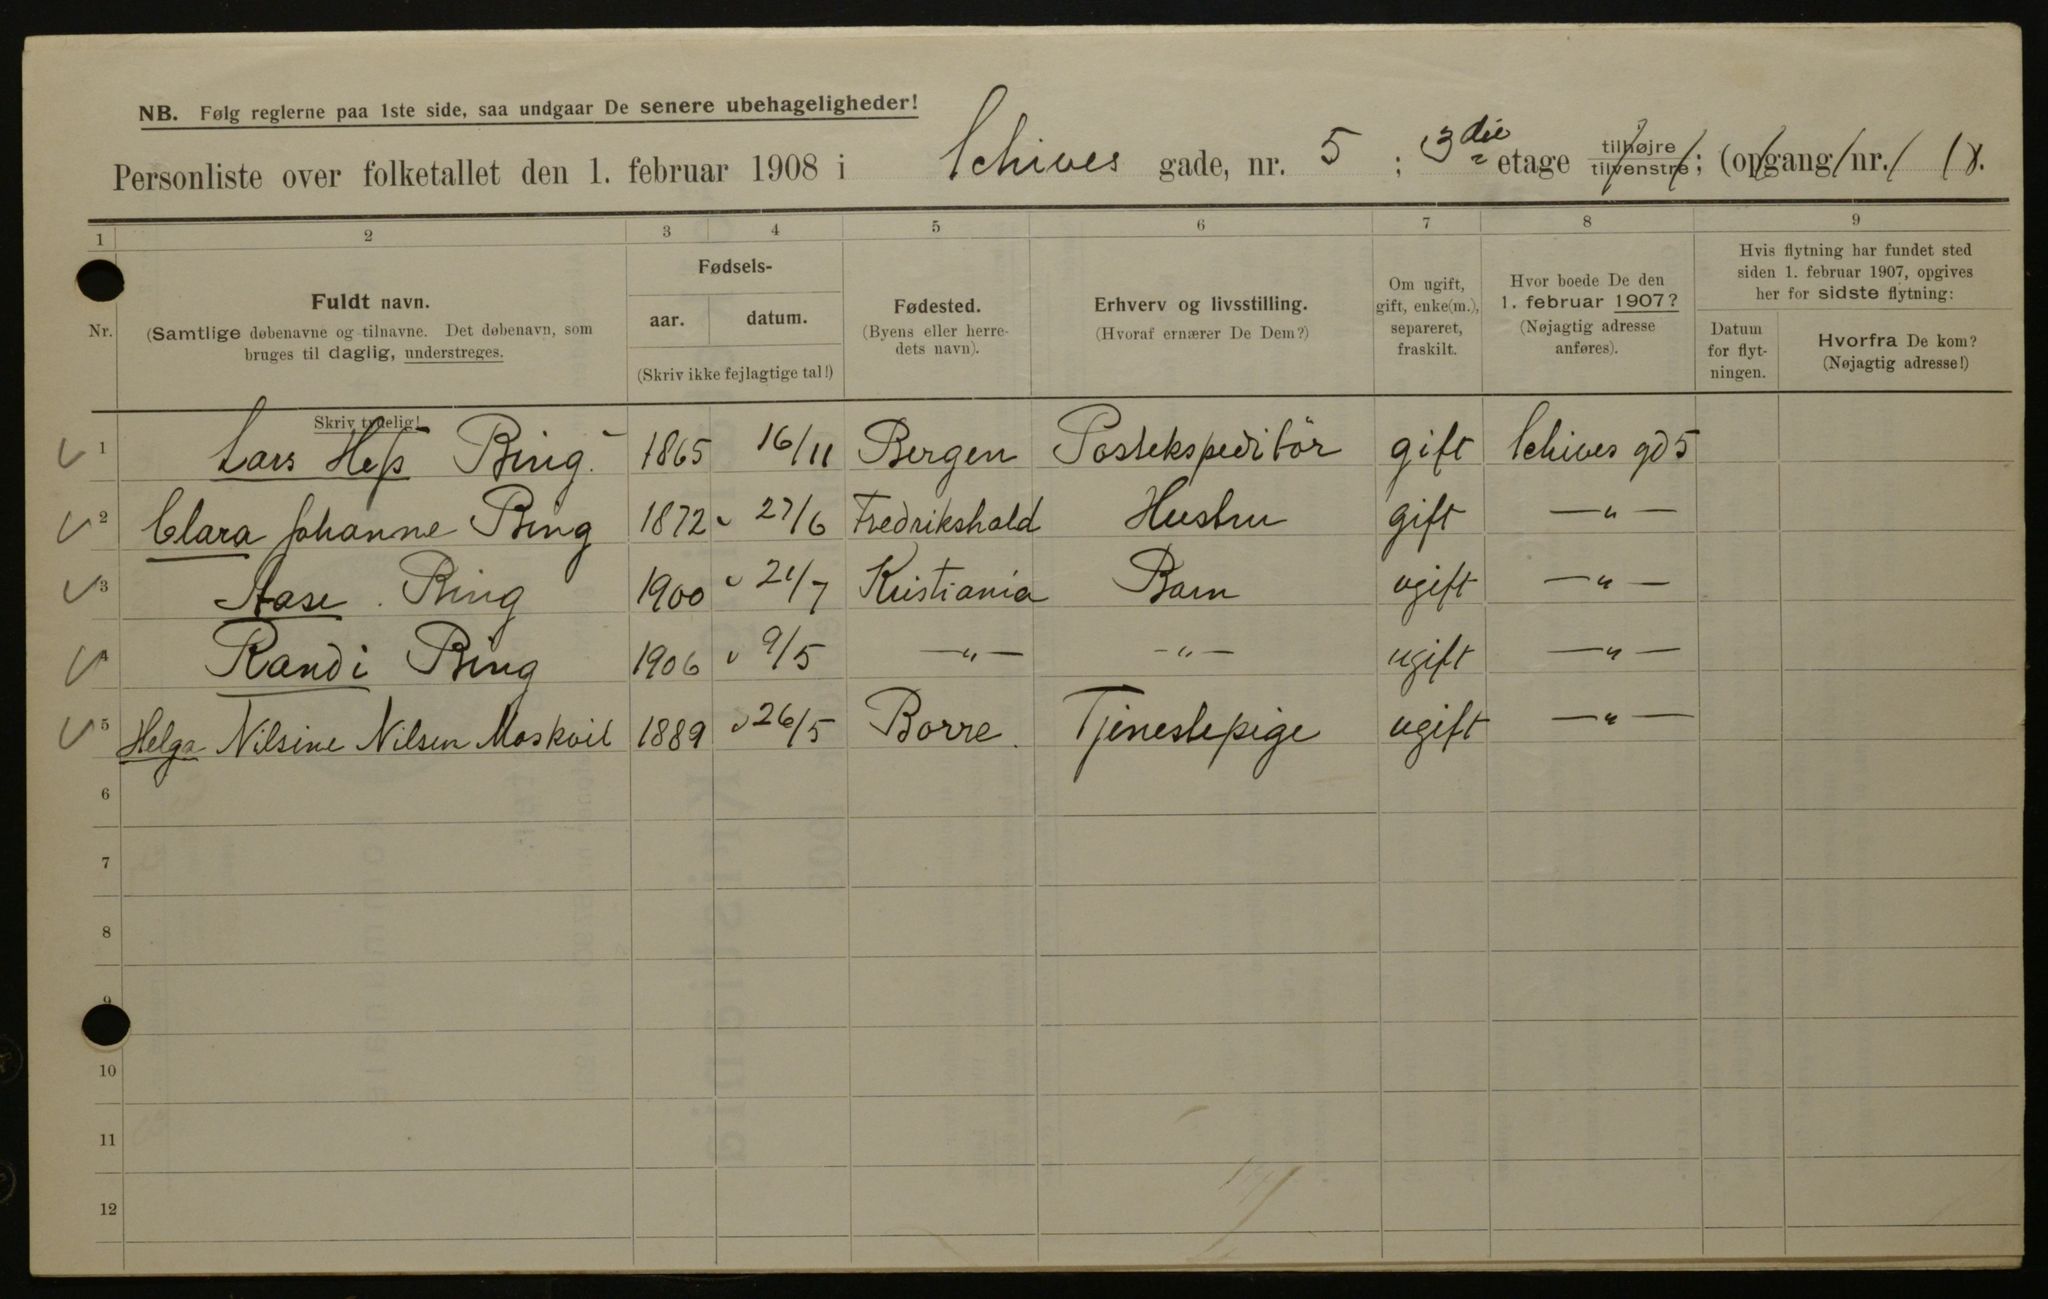 NB. Følg reglerne paa 1ste side, saa undgaar De senere ubehageligheder!
Personliste over folketallet den 1. februar 1908 i Schives gade, nr. 5 ; 3die etage tilhøjre tilvenstre ; (opgang nr. ).
1 2 3 4 5 6 7 8 9
Nr.
Fuldt navn.
(Samtlige døbenavne og tilnavne. Det døbenavn, som
bruges til daglig, understreges.
Skriv tydelig!
Fødsels-
aar. datum.
(Skriv ikke fejlagtige tal!)
Fødested.
(Byens eller herre-
dets navn).
Erhverv og livsstilling.
(Hvoraf ernærer De Dem?)
Om ugift,
gift, enke(m.),
separeret,
fraskilt.
Hvor boede De den
1. februar 1907?
(Nøjagtig adresse
anføres).
Hvis flytning har fundet sted
siden 1. februar 1907, opgives
her for sidste flytning:
Datum
for flyt-
ningen.
Hvorfra De kom?
(Nøjagtig adresse!)
1 Lars Heſs Bing. 1865 16/11 Bergen Postekspeditör gift Schives gd 5
2 Clara Johanne Bing 1872 27/6 Fredrikshald Hustru gift —"—
3 Aase. Bing 1900 21/7 Kristiania Barn ugift —"—
4 Randi Bing 1906 9/5 —"— —"— ugift —"—
5 Helga Nilsine Nilsen Moskvil 1889 26/5 Borre. Tjenestepige ugift —"—
6
7
8
9
10
11
12